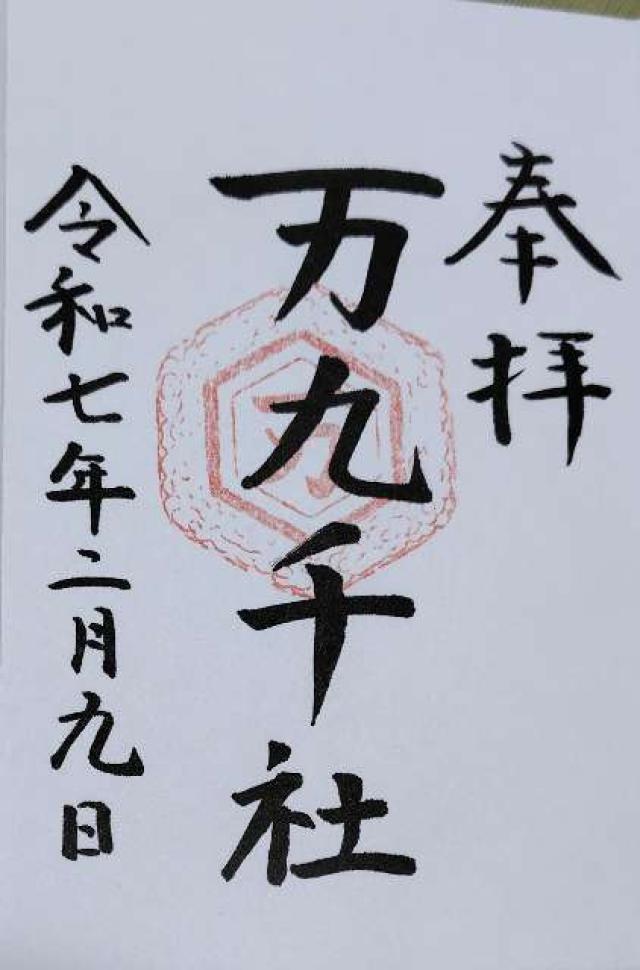 奉拝
万九千社
令和七年二月九日